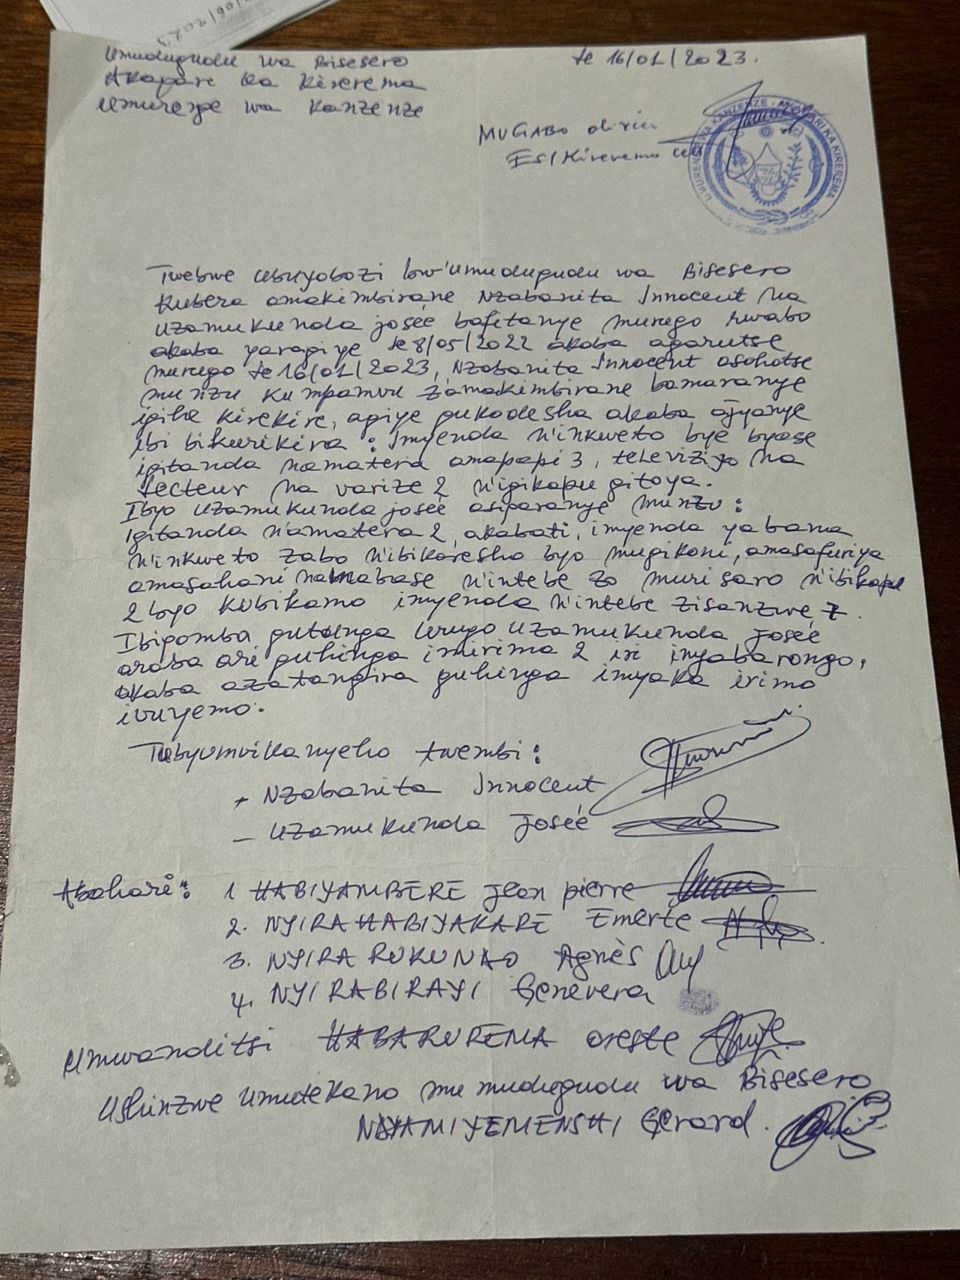 Umudugudu wa Bisesero
Akagare ka kirerema
Umurenge wa Kanzenze
le 16/01/2023.
MUGABO olivier
ES/Kirerema cell
UMURENGE WA KANZENZE - AKAGARI KA KIREREMA
Twebwe ubuyobozi bw'umudugudu wa Bisesero
Kubera amakimbirane Nzabanita Innocent na
uzamukunda joseé bafitanye murugo rwabo
akaba yaragiye le 8/05/2022 akaba agarutse
murugo le 16/01/2023, Nzabanita Innocent asohotse
mu nzu kumpamvu z'amakimbirane bamaranye
igihe kirekire, agiye gukodesha akaba ajyanye
ibi bikurikira: Imyenda n'inkweto bye byose
igitanda namatera amagagi 3, televiziyo na
Secteur na varize 2 n'igikapu gitoya.
Ibyo uzamukunda joseé asigaranye munzu:
igitanda n'amatera 2, akabati, imyenda yabana
n'inkweto zabo n'ibikoresho byo mugikoni, amasafuriya
amasahani nabase n'intebe zo muri saro n'ibikapu
2 byo kubikamo imyenda n'intebe zisanzwe 7
Ibigomba gutunga urugo uzamukunda Joseé
araba ari guhinga imirima 2 iri inyabarongo,
akaba azatangira guhinga imyaka irimo
ivuyemo.
Tubyumvikanyeho twembi:
+ Nzabanita Innocent
- uzamukunda Joseé
Abahari: 1 HABIYAMBERE Jean pierre
2. NYIRAHABIYAKARE Emerte
3. NYIRARUKUNDO Agnès
4. NYIRABIRAYI Genevera
Umwanditsi HABARUREMA oreste
Ushinzwe umutekano mu mudugudu wa Bisesero
NDAMIYEMENSHI Gérard.